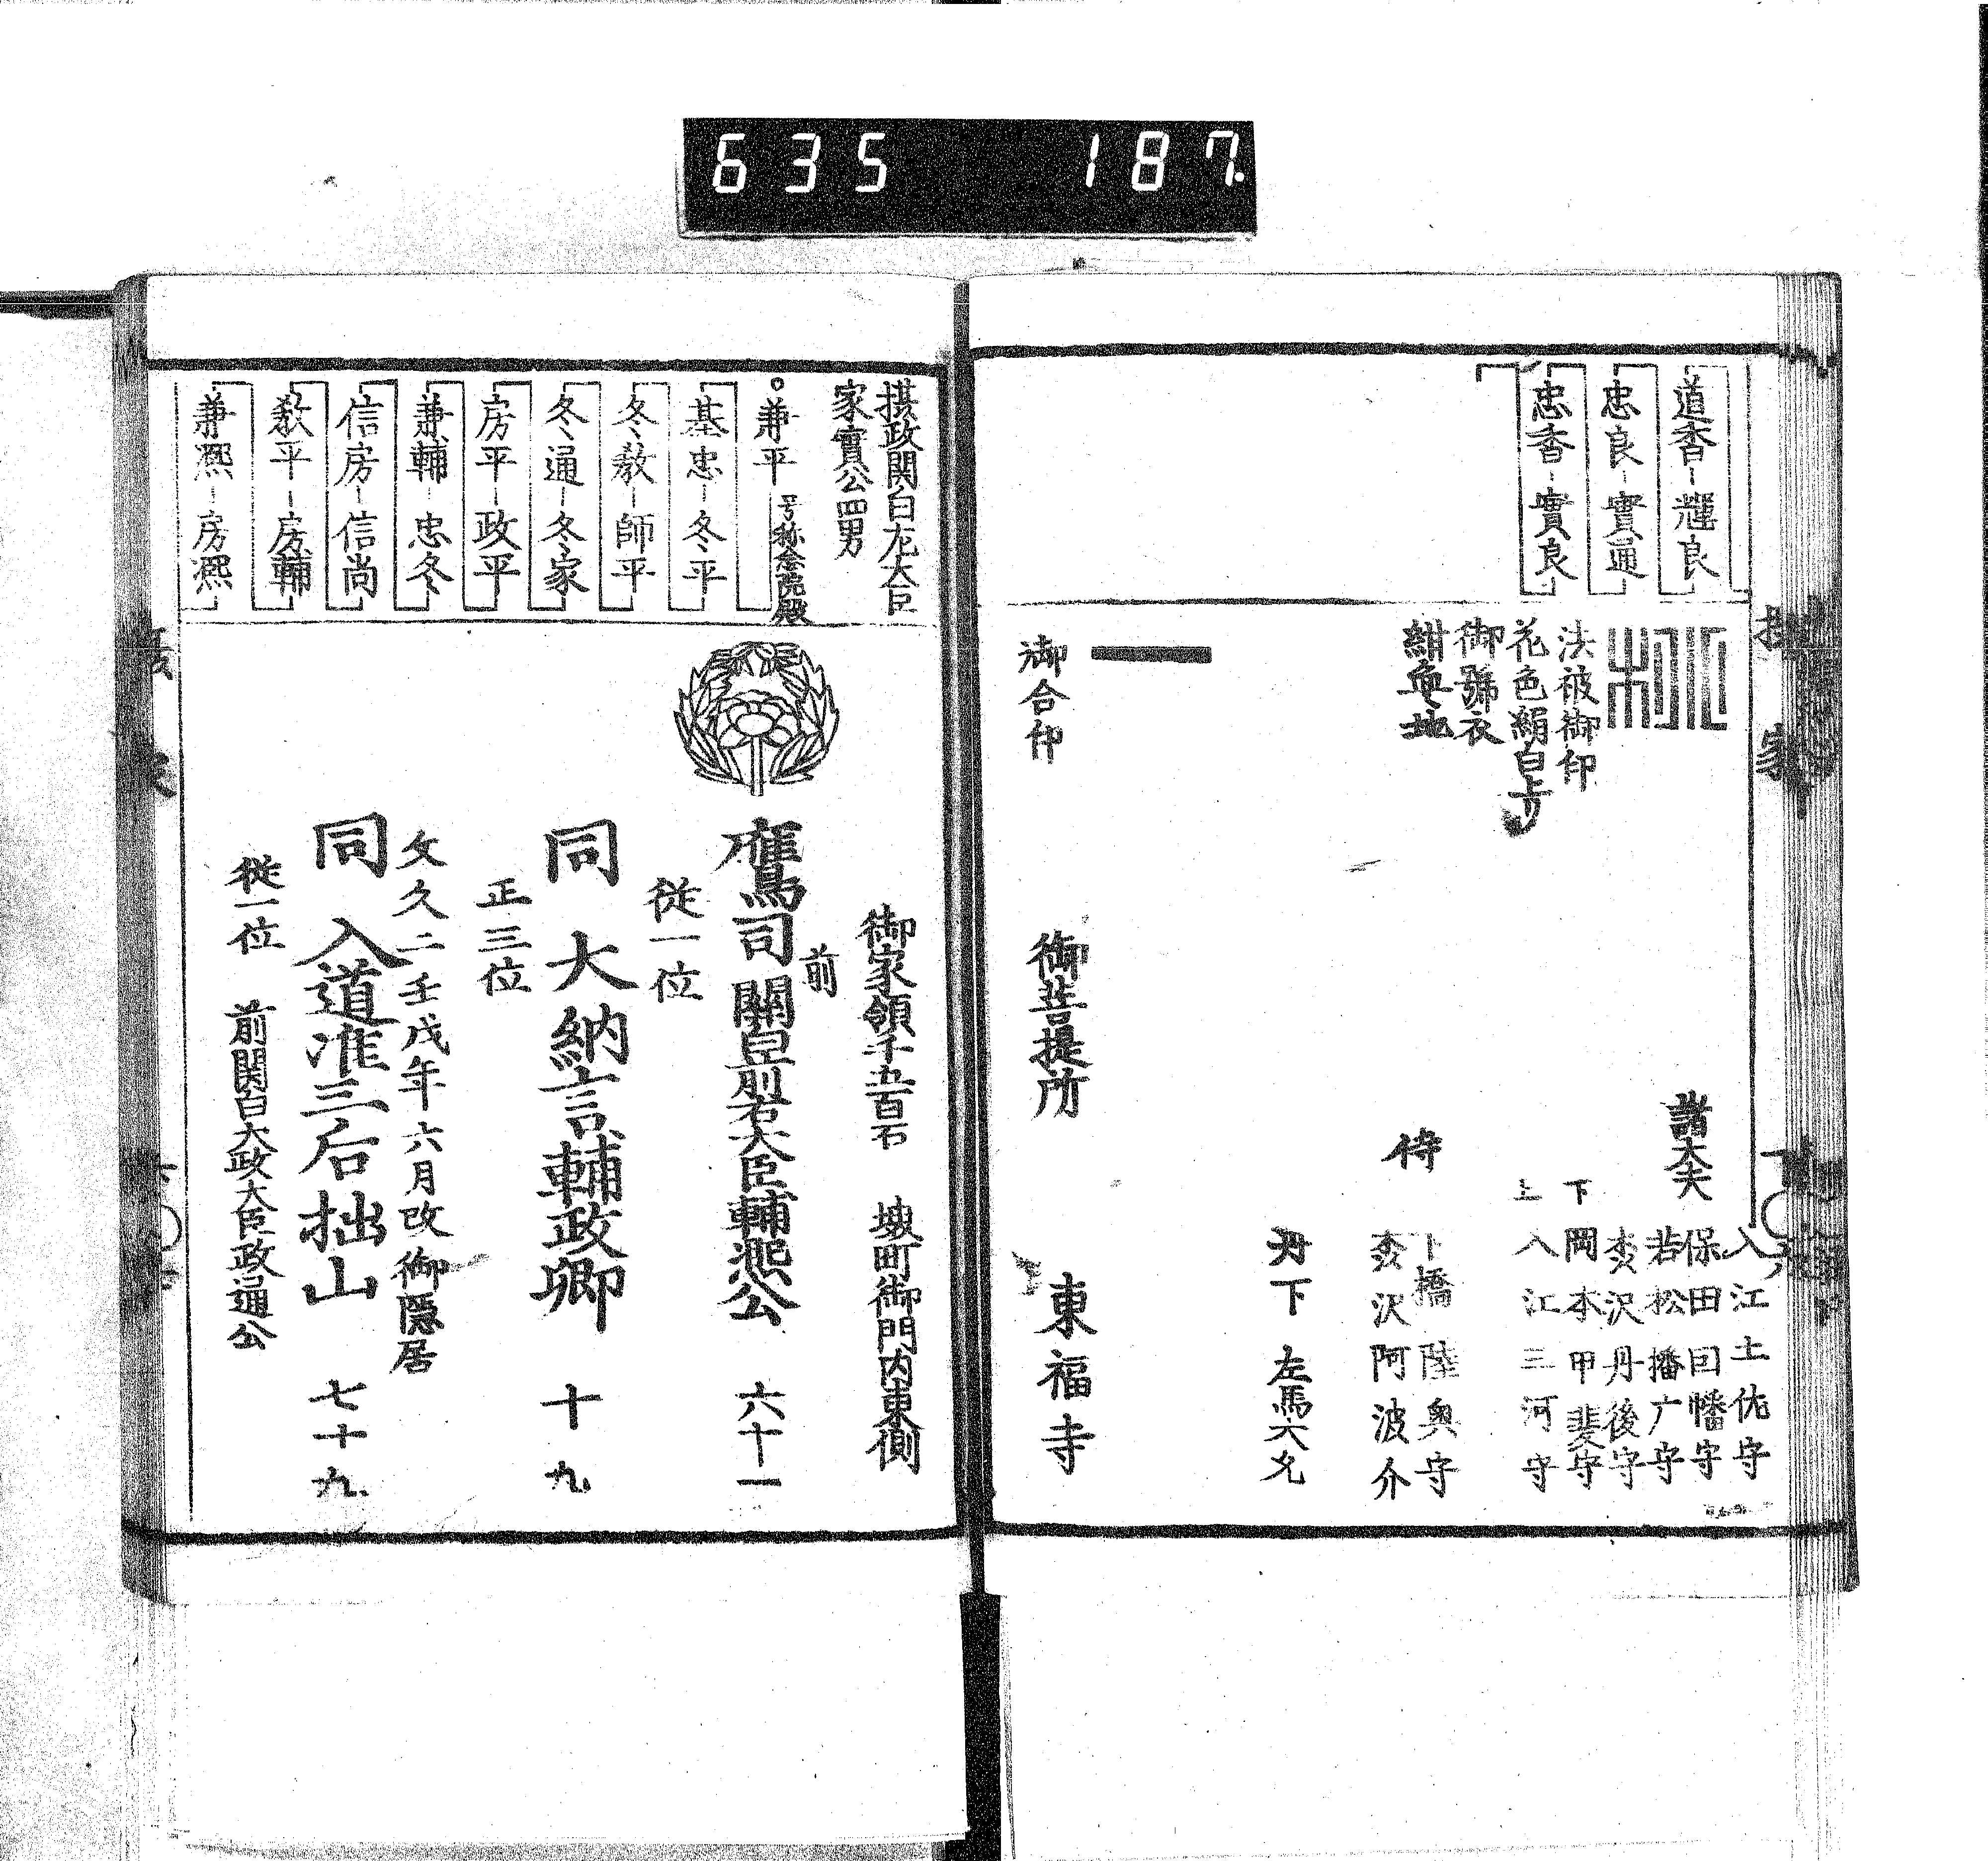 635 187
道香―輝良
忠良―實通
忠香―實良
法被御印
花色絹白上り
御號衣
紺色地
諸大夫
入江土佐守
保田因幡守
若松播广守
岡本甲斐守
下
上
入江三河守
侍
下橋陸奥守
丹下左馬大允
御合印
御菩提所
東福寺
摂政関白左大臣
家實公四男
兼平 号称念院殿
基忠―冬平
冬教―師平
冬通―冬家
房平―政平
兼輔―忠冬
信房―信尚
教平―房輔
兼凞―房凞
御家領千五百石 堺町御門内東側
前
鷹司関白前右大臣輔凞公 六十一
従一位
同 大納言輔政卿 十九
正三位
文久二壬戌年六月改御隠居
同 入道准三后拙山 七十九
従一位 前関白大政大臣政通公